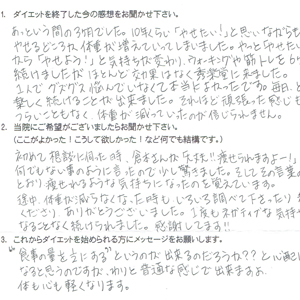 1. ダイエットを終了した今の感想をお聞かせ下さい。
あっという間の3ヶ月でした。10年くらい「やせたい!」と思いながらも
やせるどころか、体重が増えていってしまいました。やっと「やせたい」
から「やせよう!」と気持ちが変わり、ウォーキングや筋トレを
続けましたがほとんど効果はなく秀学室に来ました。
1人でグズグズ悩んでいなくて本当によかったです。毎日、と
楽しく続けることが出来ました。それほど頑張った感じも
つらいこともなく、体重が減っていたのが信じられません。
2. 当院にご希望がございましたらお聞かせ下さい。
(ここがよかった!こうして欲しかった!など何でも結構です。)
初めて相談に伺った時、「大丈夫!!痩せられますよー!」
何でもない事のように言ったので少し驚きました。そしてその言葉の
とおり痩せられるような気持ちになったのを覚えています。
途中、体重が減らなくなった時もいろいろ調べて下さったり
ください、ありがとうございました。1度もネガティブな気持
なることなく続けられました。感謝します!!
3. これからダイエットを始められる方にメッセージをお願いします。
"食事の量を言にする"というのが出来るのだろうか??と心
なると思うのですが、わりと普通な感じで出来ますよ。
体も心も軽くなります。